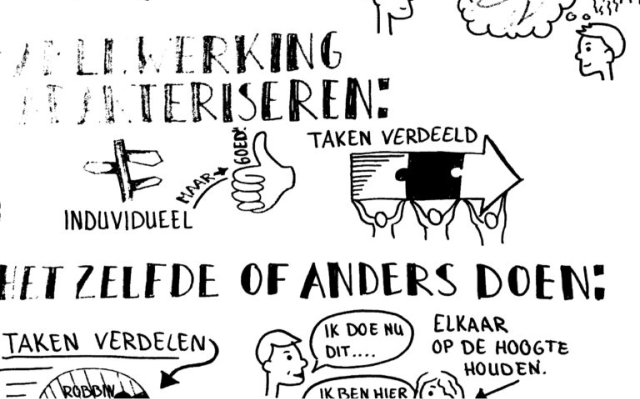 WERKING
KTERISEREN:
INDUVIDUEEL
MAAR
GOED!
TAKEN VERDEELD
HET ZELFDE OF ANDERS DOEN:
TAKEN VERDELEN
ROBBIN
IK DOE NU
DIT....
IK BEN HIER
ELKAAR
OP DE HOOGTE
HOUDEN.